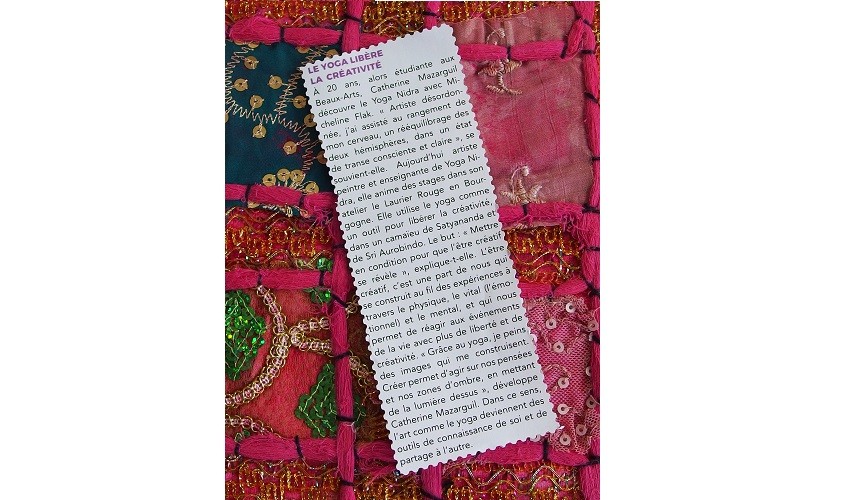 LE YOGA LIBÈRE
LA CRÉATIVITÉ
À 20 ans, alors étudiante aux
Beaux-Arts, Catherine Mazarguil
découvre le Yoga Nidra avec Mi-
cheline Flak. « Artiste désordon-
née, j'ai assisté au rangement de
mon cerveau, un rééquilibrage des
deux hémisphères, dans un état
de transe consciente et claire », se
souvient-elle. Aujourd'hui artiste
peintre et enseignante de Yoga Ni-
dra, elle anime des stages dans son
atelier le Laurier Rouge en Bour-
gogne. Elle utilise le yoga comme
un outil pour libérer la créativité,
dans un camaïeu de Satyananda et
de Sri Aurobindo. Le but : « Mettre
en condition pour que l'être créatif
se révèle », explique-t-elle. L'être
créatif, c'est une part de nous qui
se construit au fil des expériences à
travers le physique, le vital (l'émo-
tionnel) et le mental, et qui nous
permet de réagir aux événements
de la vie avec plus de liberté et de
créativité. « Grâce au yoga, je peins
des images qui me construisent.
Créer permet d'agir sur nos pensées
et nos zones d'ombre, en mettant
de la lumière dessus », développe
Catherine Mazarguil. Dans ce sens,
l'art comme le yoga deviennent des
outils de connaissance de soi et de
partage à l'autre.